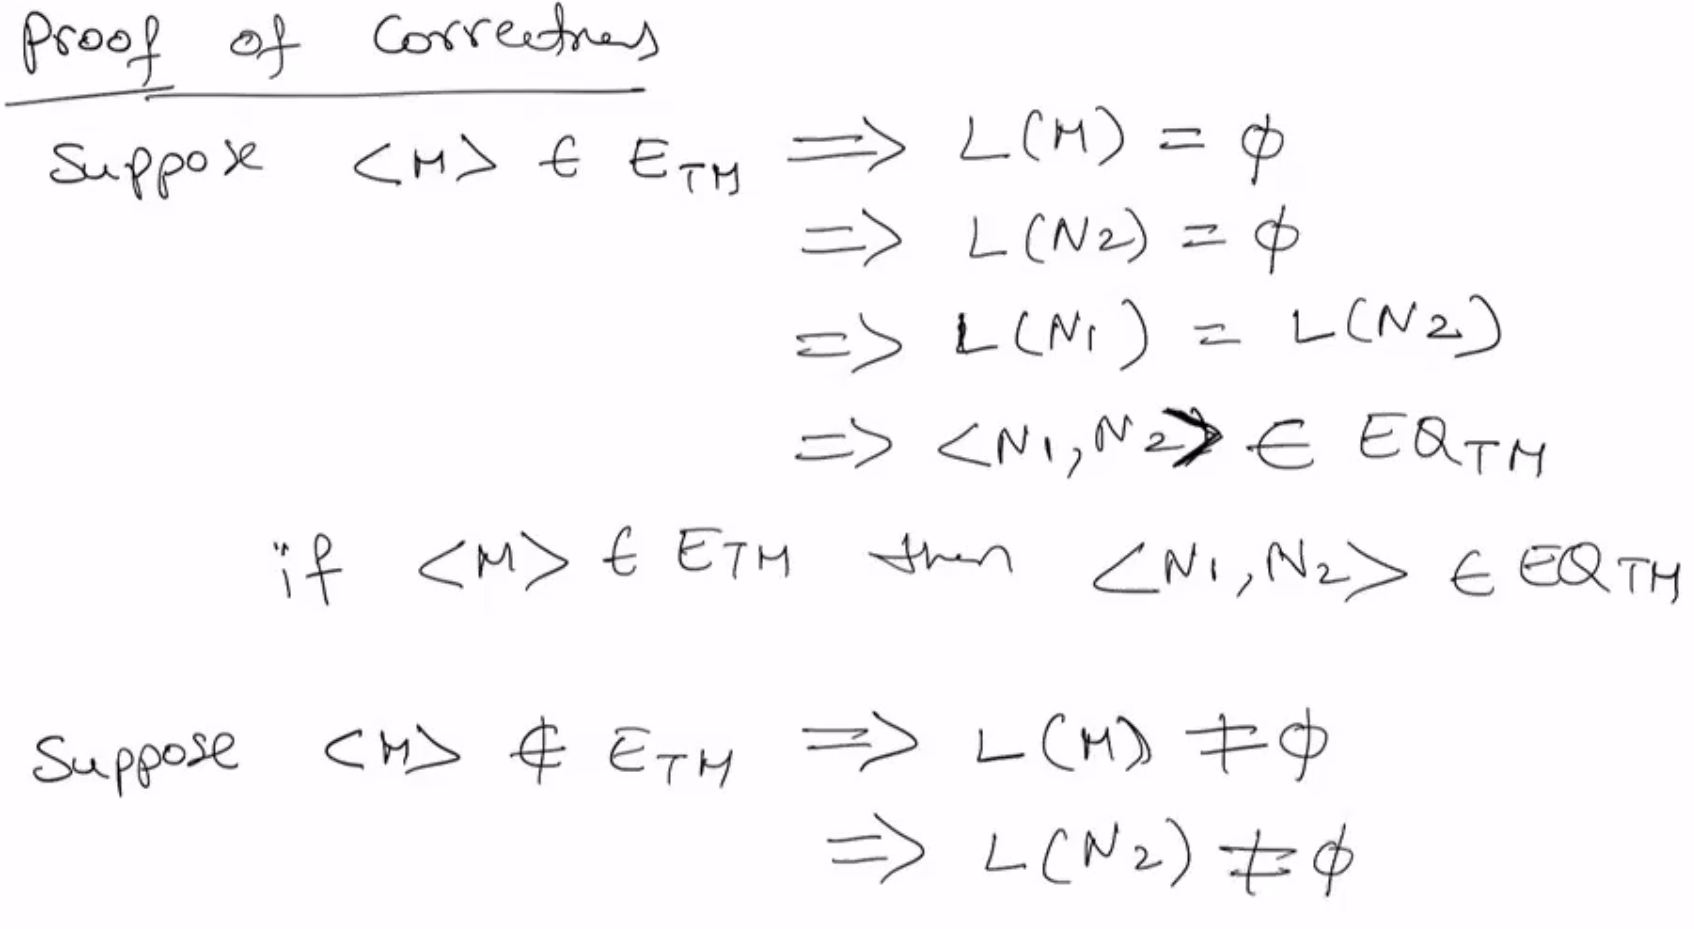 Proof of Correctness
Suppose <M> ∈ E_TM => L(M) = φ
=> L(N2) = φ
=> L(N1) = L(N2)
=> <N1, N2> ∈ EQ_TM
if <M> ∈ E_TM then <N1, N2> ∈ EQ_TM
Suppose <M> ∉ E_TM => L(M) ≠ φ
=> L(N2) ≠ φ